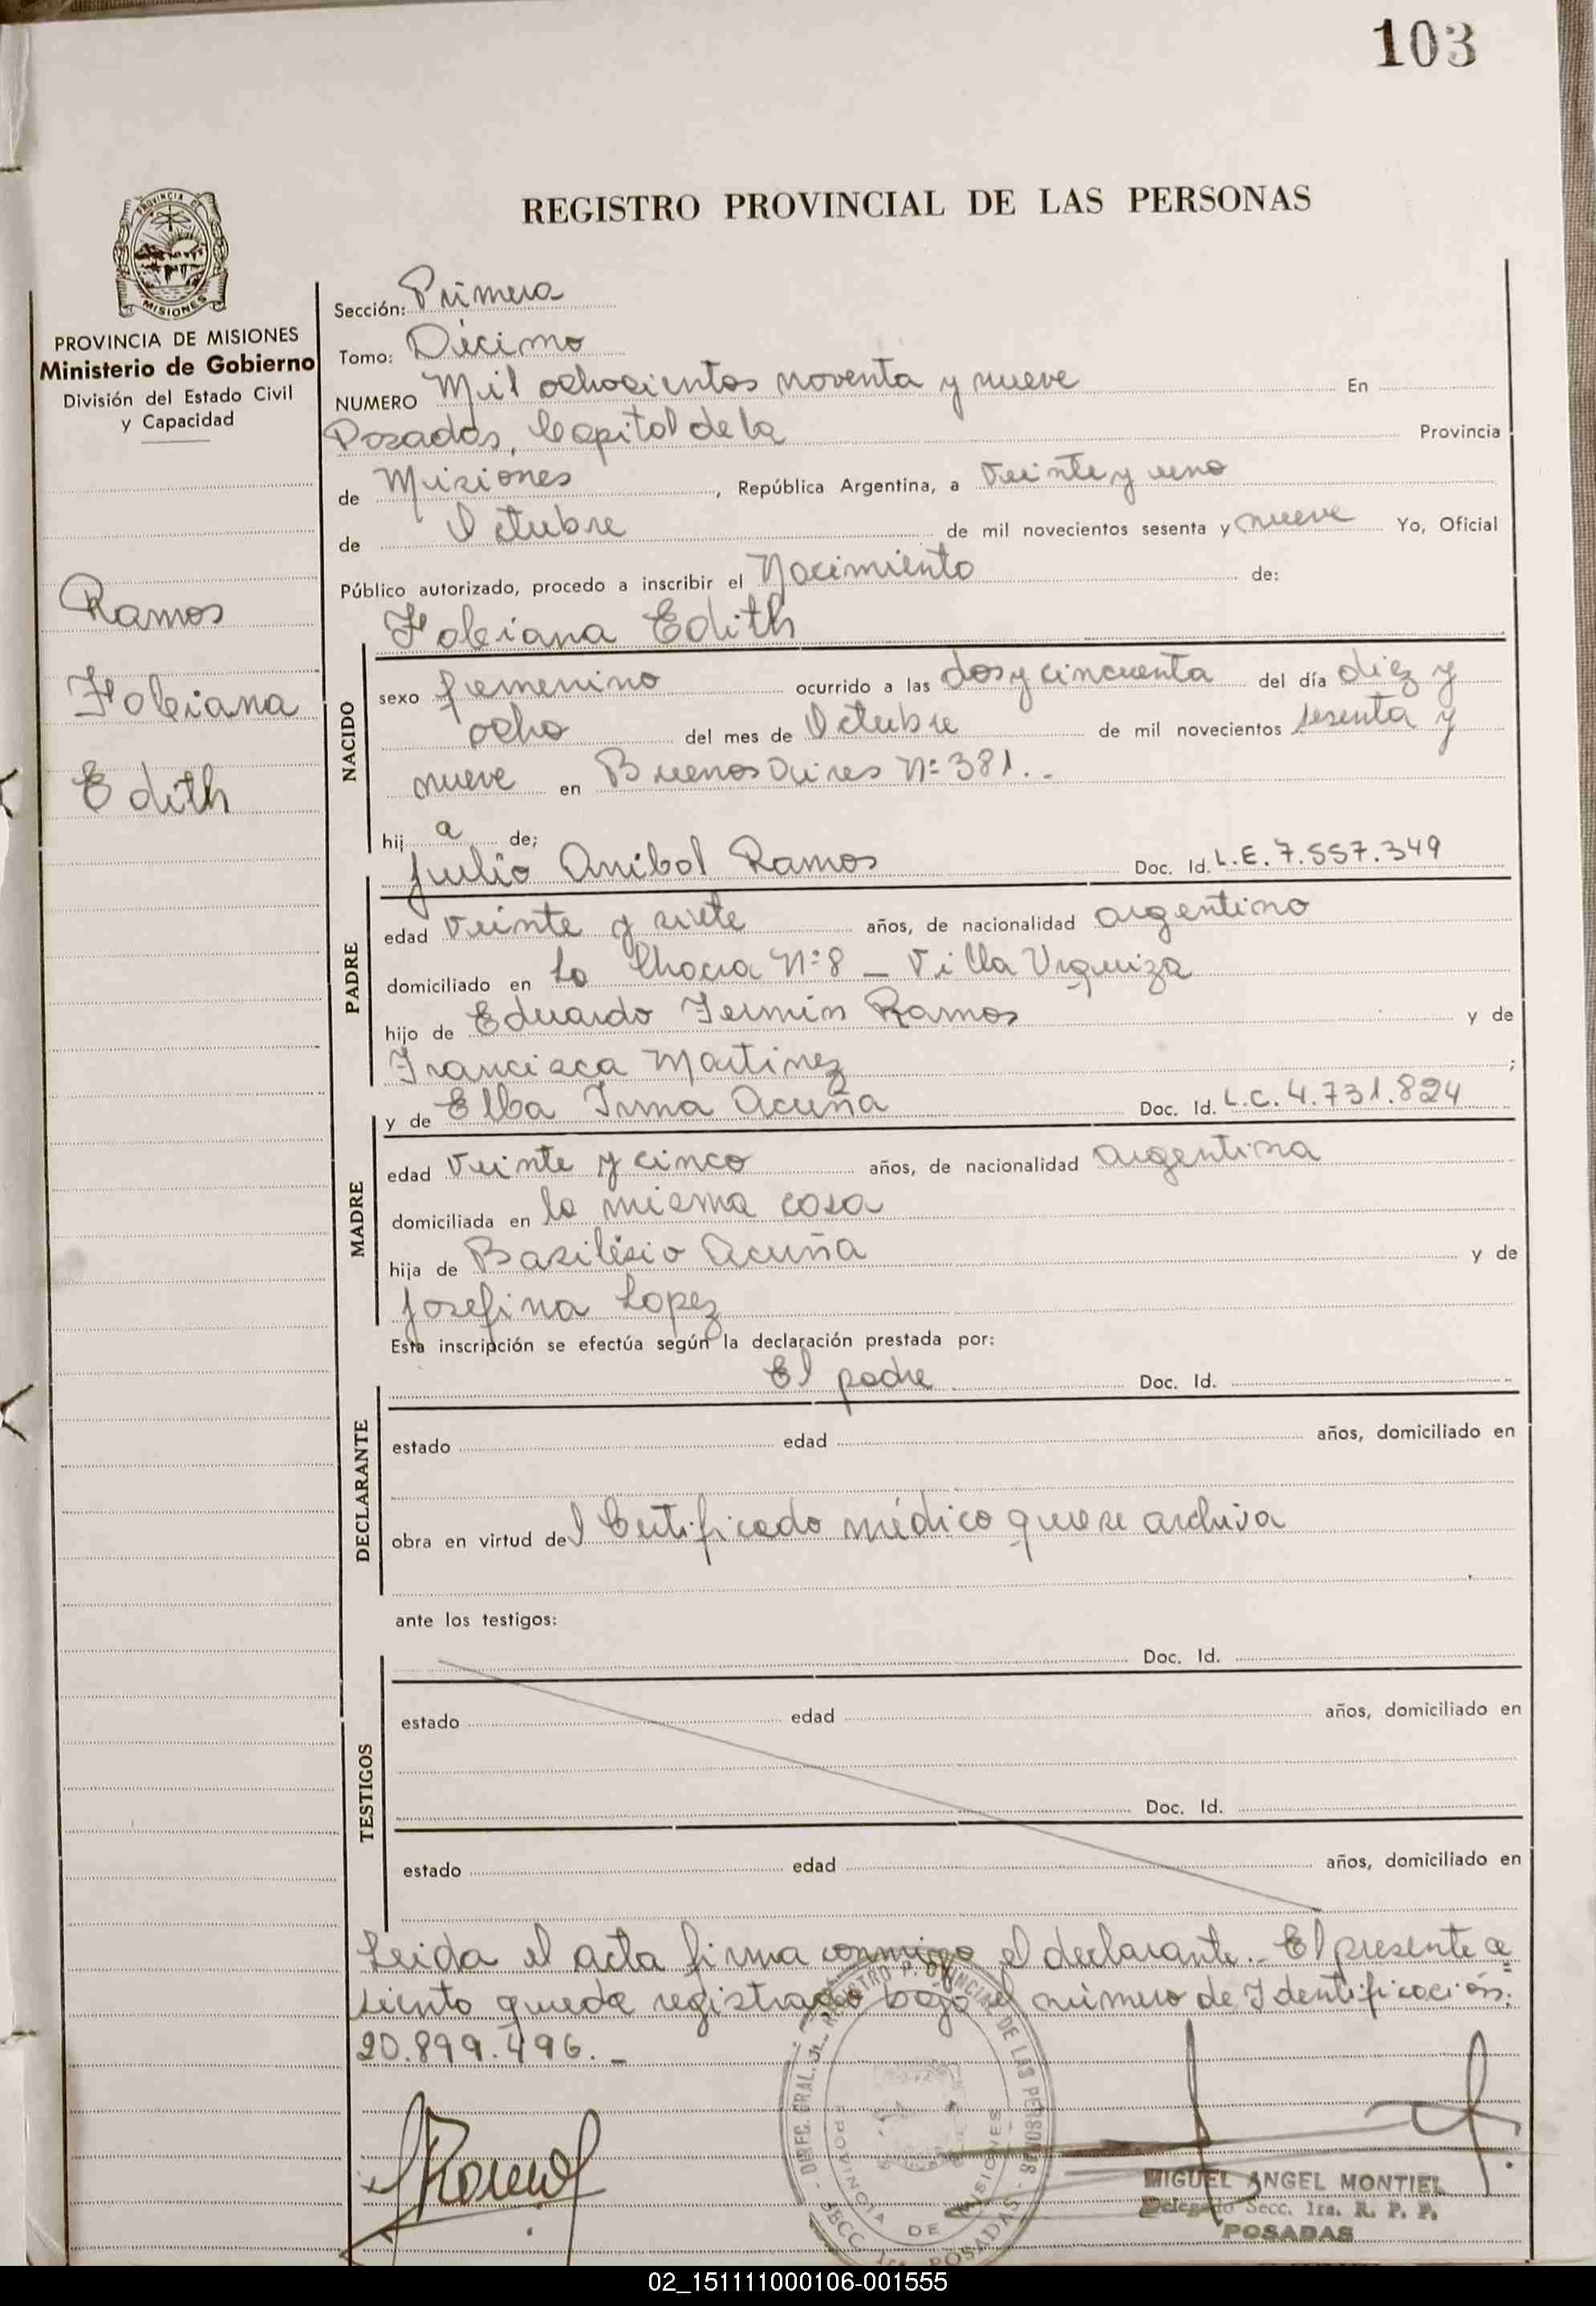 103
REGISTRO PROVINCIAL DE LAS PERSONAS
PROVINCIA DE
MISIONES
PROVINCIA DE MISIONES
Ministerio de Gobierno
División del Estado Civil
y Capacidad
Ramos
Fabiana
Edith
Sección: Primera
Tomo: Décimo
NUMERO Mil ochocientos noventa y nueve En
Posadas, Capital de la Provincia
de Misiones, República Argentina, a Veinte y uno
de Octubre de mil novecientos sesenta y nueve Yo, Oficial
Público autorizado, procedo a inscribir el Nacimiento de:
Fabiana Edith
NACIDO
sexo femenino ocurrido a las dos y cincuenta del día diez y
ocho del mes de Octubre de mil novecientos sesenta y
nueve en Buenos Aires Nº 381.-
hij a de;
Julio Anibal Ramos Doc. Id. L.E. 7.557.349
PADRE
edad Veinte y siete años, de nacionalidad argentino
domiciliado en La Chacra Nº 8 - Villa Urquiza
hijo de Eduardo Fermin Ramos y de
Francisca Martinez ;
y de Elba Irma Acuña Doc. Id. L.C. 4.731.824
MADRE
edad Veinte y cinco años, de nacionalidad argentina
domiciliada en la misma casa
hija de Basilisio Acuña y de
Josefina Lopez
Esta inscripción se efectúa según la declaración prestada por:
El padre Doc. Id.
DECLARANTE
estado edad años, domiciliado en
obra en virtud del Certificado médico que se archiva
ante los testigos:
Doc. Id.
TESTIGOS
estado edad años, domiciliado en
Doc. Id.
estado edad años, domiciliado en
Leida el acta firma conmigo el declarante.- El presente a=
siento queda registrado bajo el número de Identificación:
20.899.496.-
DIREC. GRAL. REGISTRO PROVINCIAL DE LAS PERSONAS
PROVINCIA DE MISIONES
SECC. 1ra. POSADAS
MIGUEL ANGEL MONTIEL
Delegado Secc. 1ra. R. P. P.
POSADAS
02_151111000106-001555